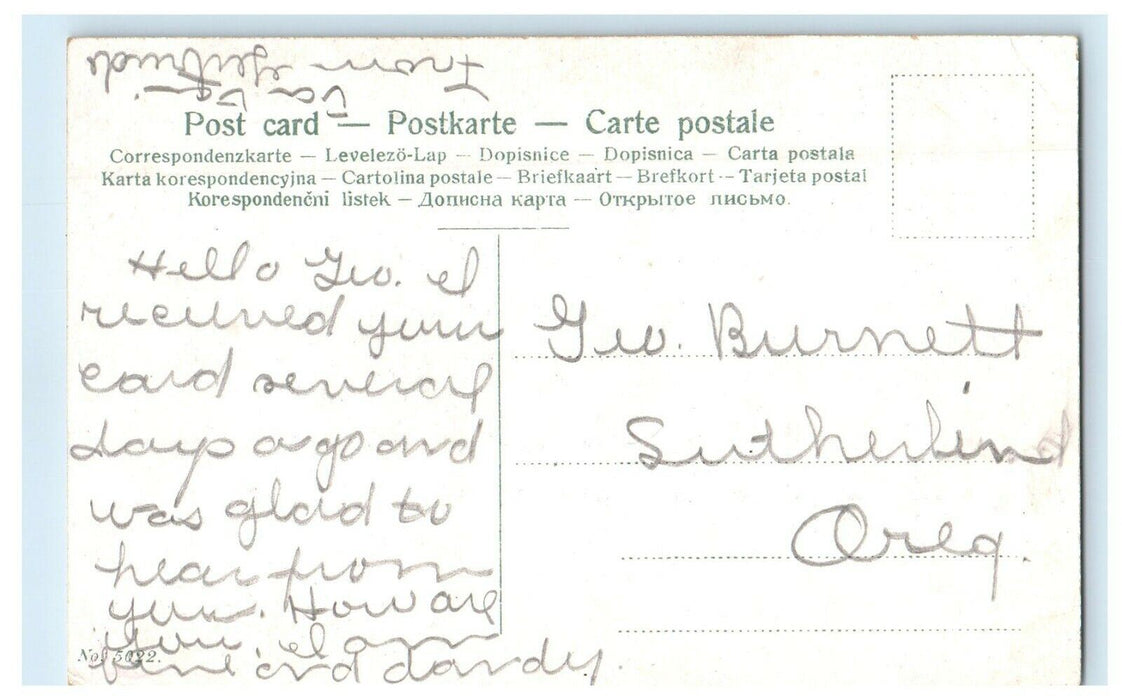 From Gertrude
Post card — Postkarte — Carte postale
Correspondenzkarte — Levelező-Lap — Dopisnice — Dopisnica — Carta postala
Karta korespondencyjna — Cartolina postale — Briefkaart — Brefkort — Tarjeta postal
Korespondenčni listek — Дописна карта — Открытое письмо.
Hello Geo. I
received your
card several
days ago and
was glad to
hear from
you. How are
you. I am
fine and dandy.
Geo. Burnett
Sutherlind
Oreg.
No. 5022.